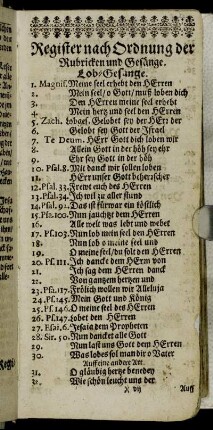 Register nach Ordnung der
Rubricken und Gesänge.
Lob-Gesänge.
1. Magnif. Meine seel erhebt den HErren
2. Mein seel / o Gott / muß loben dich
3. Den HErren meine seel erhebt
4. Mein hertz und seel den HErrn
5. Zach. Lobges. Gelobet sey der HErr der
6. Gelobt sey Gott der Israel
7. Te Deum. HErr Gott dich loben wir
8. Allein Gott in der höh sey ehr
9. Ehr sey Gott in der höh
10. Psal. 8. Mit danck wir sollen loben
11. HErr unser Gott dein herrscher
12. Psal. 33. Frewt euch des HErren
13. Psal. 34. Ich wil zu aller stund
14. Psal. 92. Das ist fürwar ein köstlich
15. Ps. 100. Nun jauchtzt dem HErren
16. Alle welt was lebt und webet
17. Ps. 103. Nun lob mein seel den HErren
18. Nun lob o meine seel und
19. O meine seel / du solt den HErren
20. Ps. 111. Ich dancke dem HErrn von
21. Ich sag dem HErren danck
22. Von gantzem hertzen und
23. Psa. 117. Frölich wollen wir Alleluja
24. Ps. 145. Mein Gott und König
25. Ps. 146. O meine seel des HErren
26. Ps. 147. Lobet den HErren
27. Esai. 6. Jesaia dem Propheten
28. Sir. 50. Nun dancket alle Gott
29. Nun last uns Gott dem HErren
30. Was lobes sol man dir o Vater
Auff eine andre Art.
31. O gläubig hertze benedey
32. Wie schön leucht uns der
X vij Auff